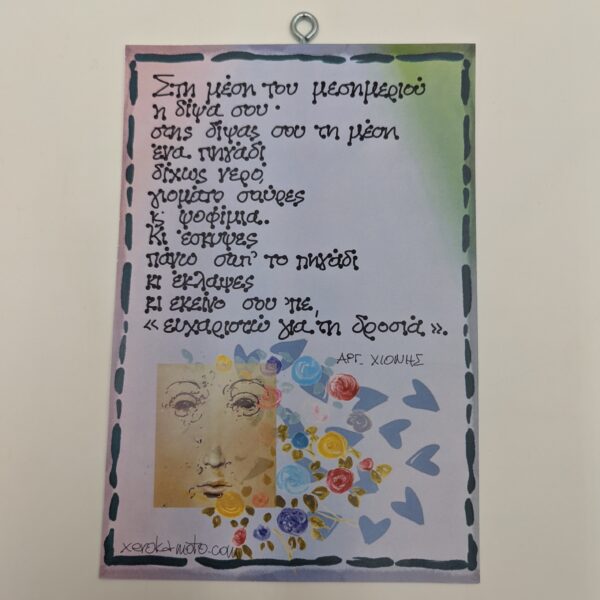 Στη μέση του μεσημεριού
η δίψα σου·
στης δίψας σου τη μέση
ένα πηγάδι
δίχως νερό,
γιομάτο σαύρες
κ' ψοφίμια..
Κι έσκυψες
πάνω απ' το πηγάδι
κι έκλαψες
κι εκείνο σου 'πε,
«ευχαριστώ για τη δροσιά».
ΑΡΓ. ΧΙΟΝΗΣ
xerokamoto.com